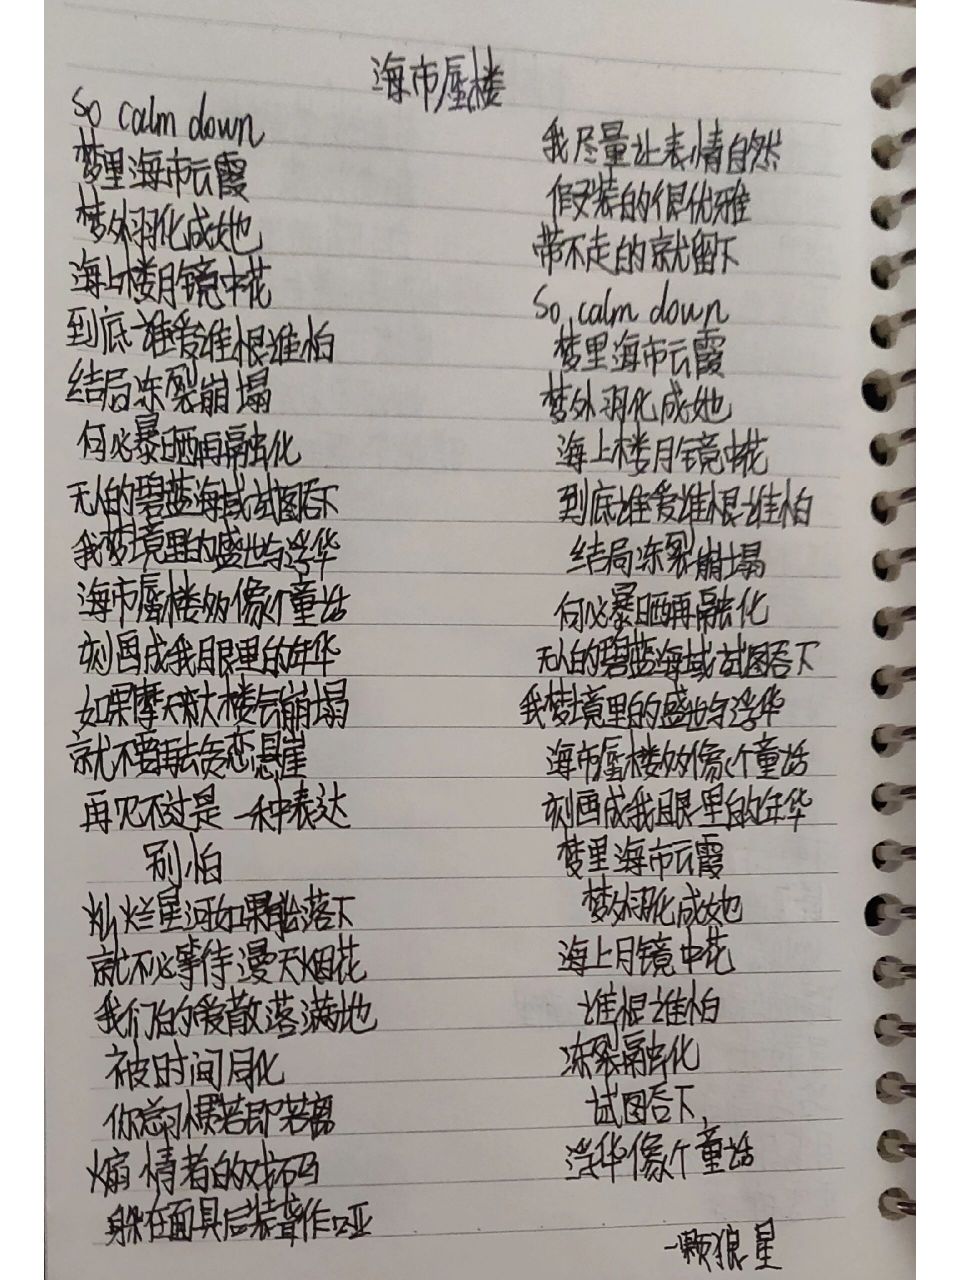 海市蜃楼
So calm down
梦里海市云霞
梦外羽化成她
海上楼月镜中花
到底谁爱谁恨谁怕
结局冻裂崩塌
何必暴晒再融化
无人的碧蓝海域试图吞下
我梦境里的盛世与浮华
海市蜃楼够像个童话
刻画成我眼里的年华
如果摩天大楼会崩塌
就不要再去贪恋悬崖
再见不过是一种表达
别怕
灿烂星河如果能落下
就不必等待漫天烟花
我们的爱散落满地
被时间同化
你总习惯若即若离
煽情者的戏码
躲在面具后装聋作哑
我尽量让表情自然
假装的很优雅
带不走的就留下
So calm down
梦里海市云霞
梦外羽化成她
海上楼月镜中花
到底谁爱谁恨谁怕
结局冻裂崩塌
何必暴晒再融化
无人的碧蓝海域试图吞下
我梦境里的盛世与浮华
海市蜃楼够像个童话
刻画成我眼里的年华
梦里海市云霞
梦外羽化成她
海上月镜中花
谁恨谁怕
冻裂融化
试图吞下,
浮华像个童话
一颗狼星